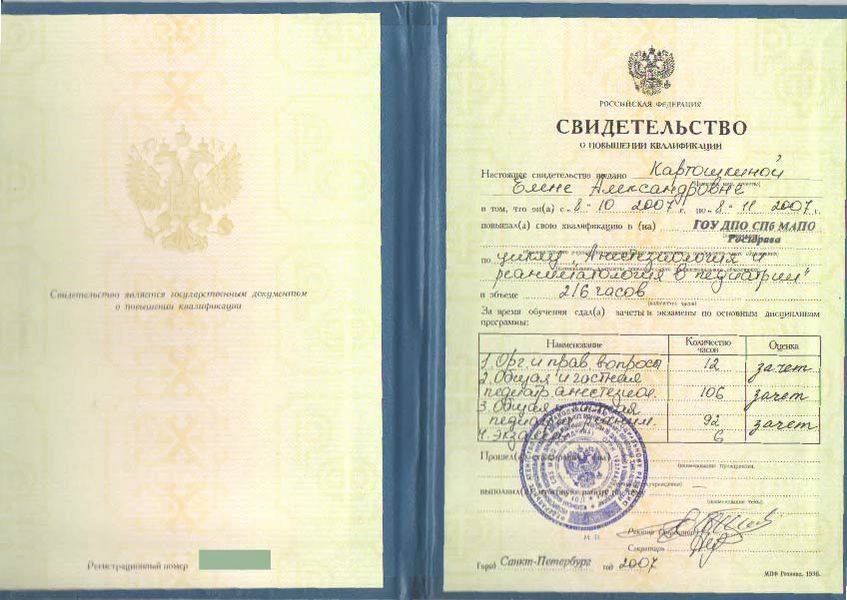 Свидетельство является государственным документом
о повышении квалификации
Регистрационный номер
РОССИЙСКАЯ ФЕДЕРАЦИЯ
СВИДЕТЕЛЬСТВО
О ПОВЫШЕНИИ КВАЛИФИКАЦИИ
Настоящее свидетельство выдано Картошкиной
Елене Александровне
в том, что он(а) с „8“ 10 2007 г. по „8“ 11 2007 г.
повышал(а) свою квалификацию в (на) ГОУ ДПО СПб МАПО
Росздрава
по циклу „Анестезиология и
реаниматология в педиатрии"
в объеме 216 часов
(количество часов)
За время обучения сдал(а) зачеты и экзамены по основным дисциплинам
программы:
Наименование Количество часов Оценка
1. Орг. и прав. вопросы 12 зачет
2. Общая и частная
педиатр. анестезиол. 106 зачет
3. Общая и частная
педиатр. 92 зачет
4. Экзамен 6
Прошел(а) (на)
(наименование предприятия,
выполнил(а) итоговую работу
(наименование темы)
М. П.
Ректор
Секретарь
Город Санкт-Петербург год 2007
МПФ Гознака. 1996.